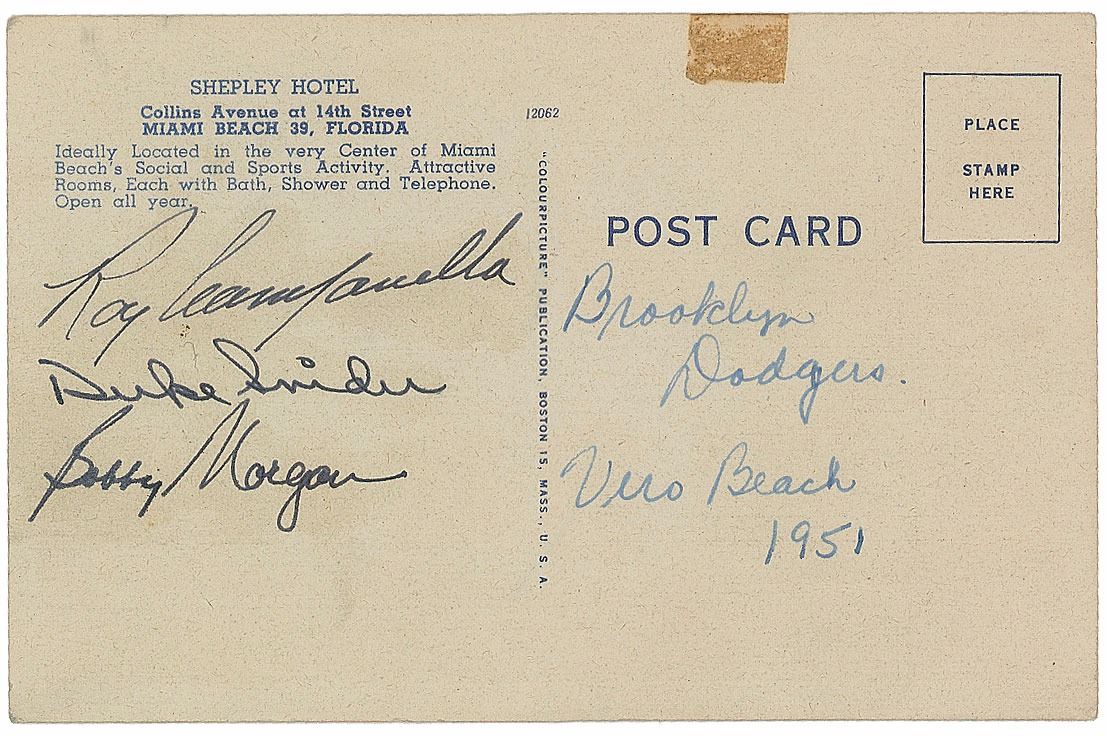 SHEPLEY HOTEL
Collins Avenue at 14th Street
MIAMI BEACH 39, FLORIDA
Ideally Located in the very Center of Miami
Beach's Social and Sports Activity. Attractive
Rooms, Each with Bath, Shower and Telephone.
Open all year.
Roy Campanella
Duke Snider
Bobby Morgan
12062
"COLOURPICTURE" PUBLICATION, BOSTON 15, MASS., U. S. A.
PLACE
STAMP
HERE
POST CARD
Brooklyn
Dodgers.
Vero Beach
1951